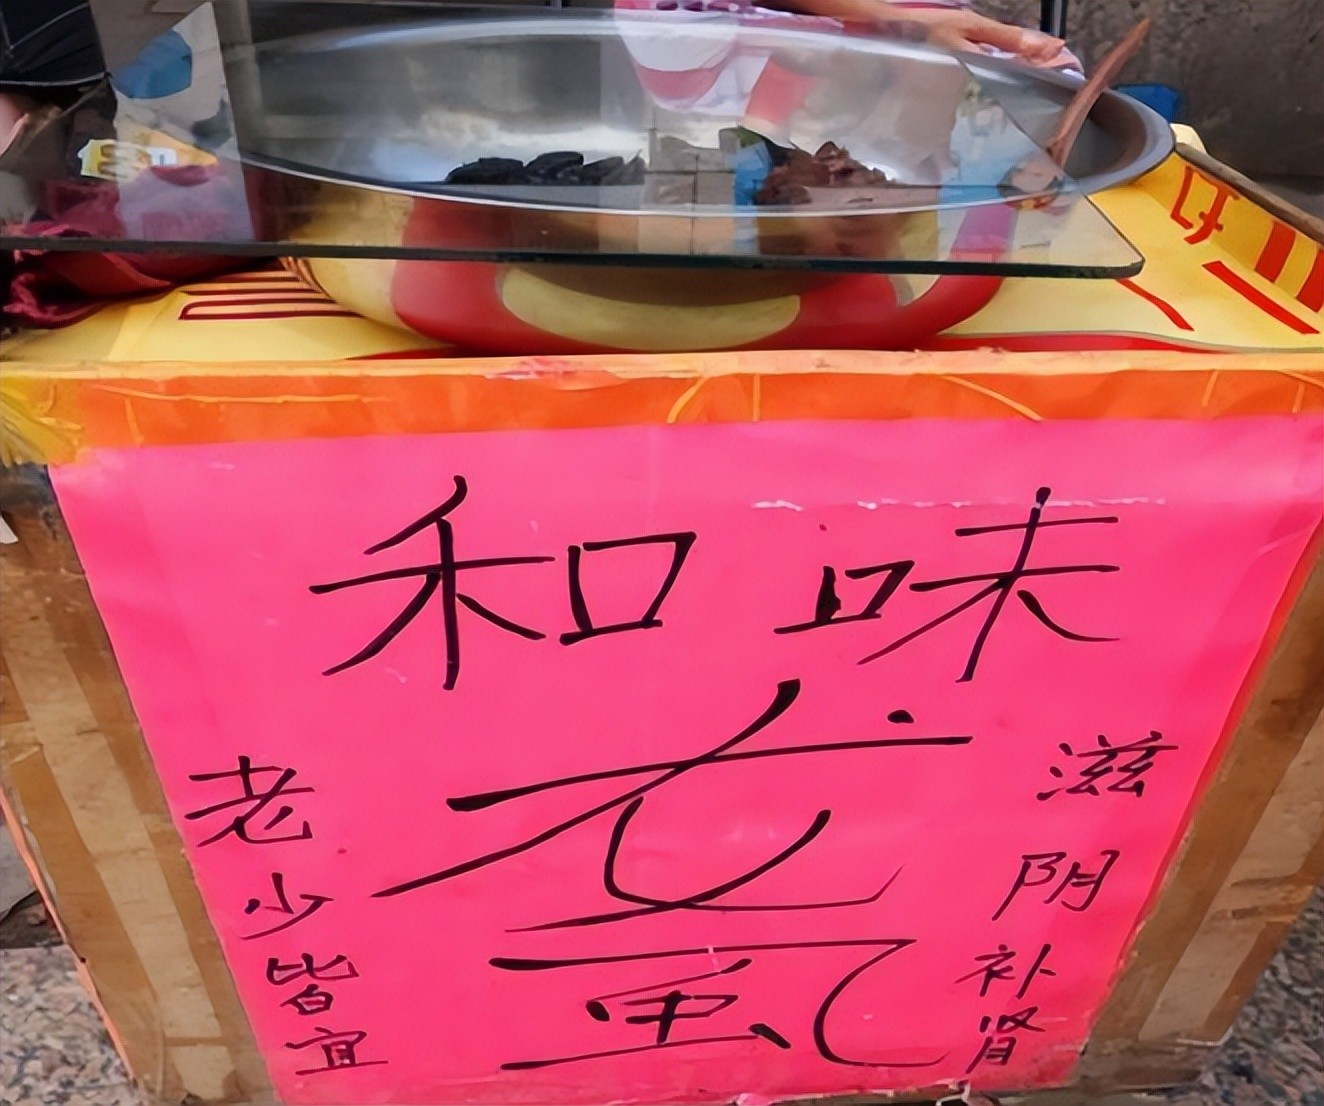 和味
龙
虱
老少皆宜
滋阴补肾